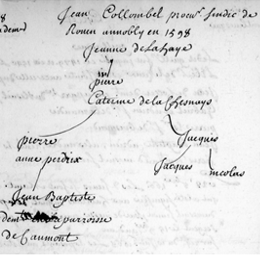 Jean Collombel procur. sindic de
Rouen annobly en 1598
Jeanne de la haye
pierre
Caterine de la Chesnaye
pierre
Jacques
anne perdrix
Jacques
nicolas
Jean Baptiste
dem parroisse
de Caumont